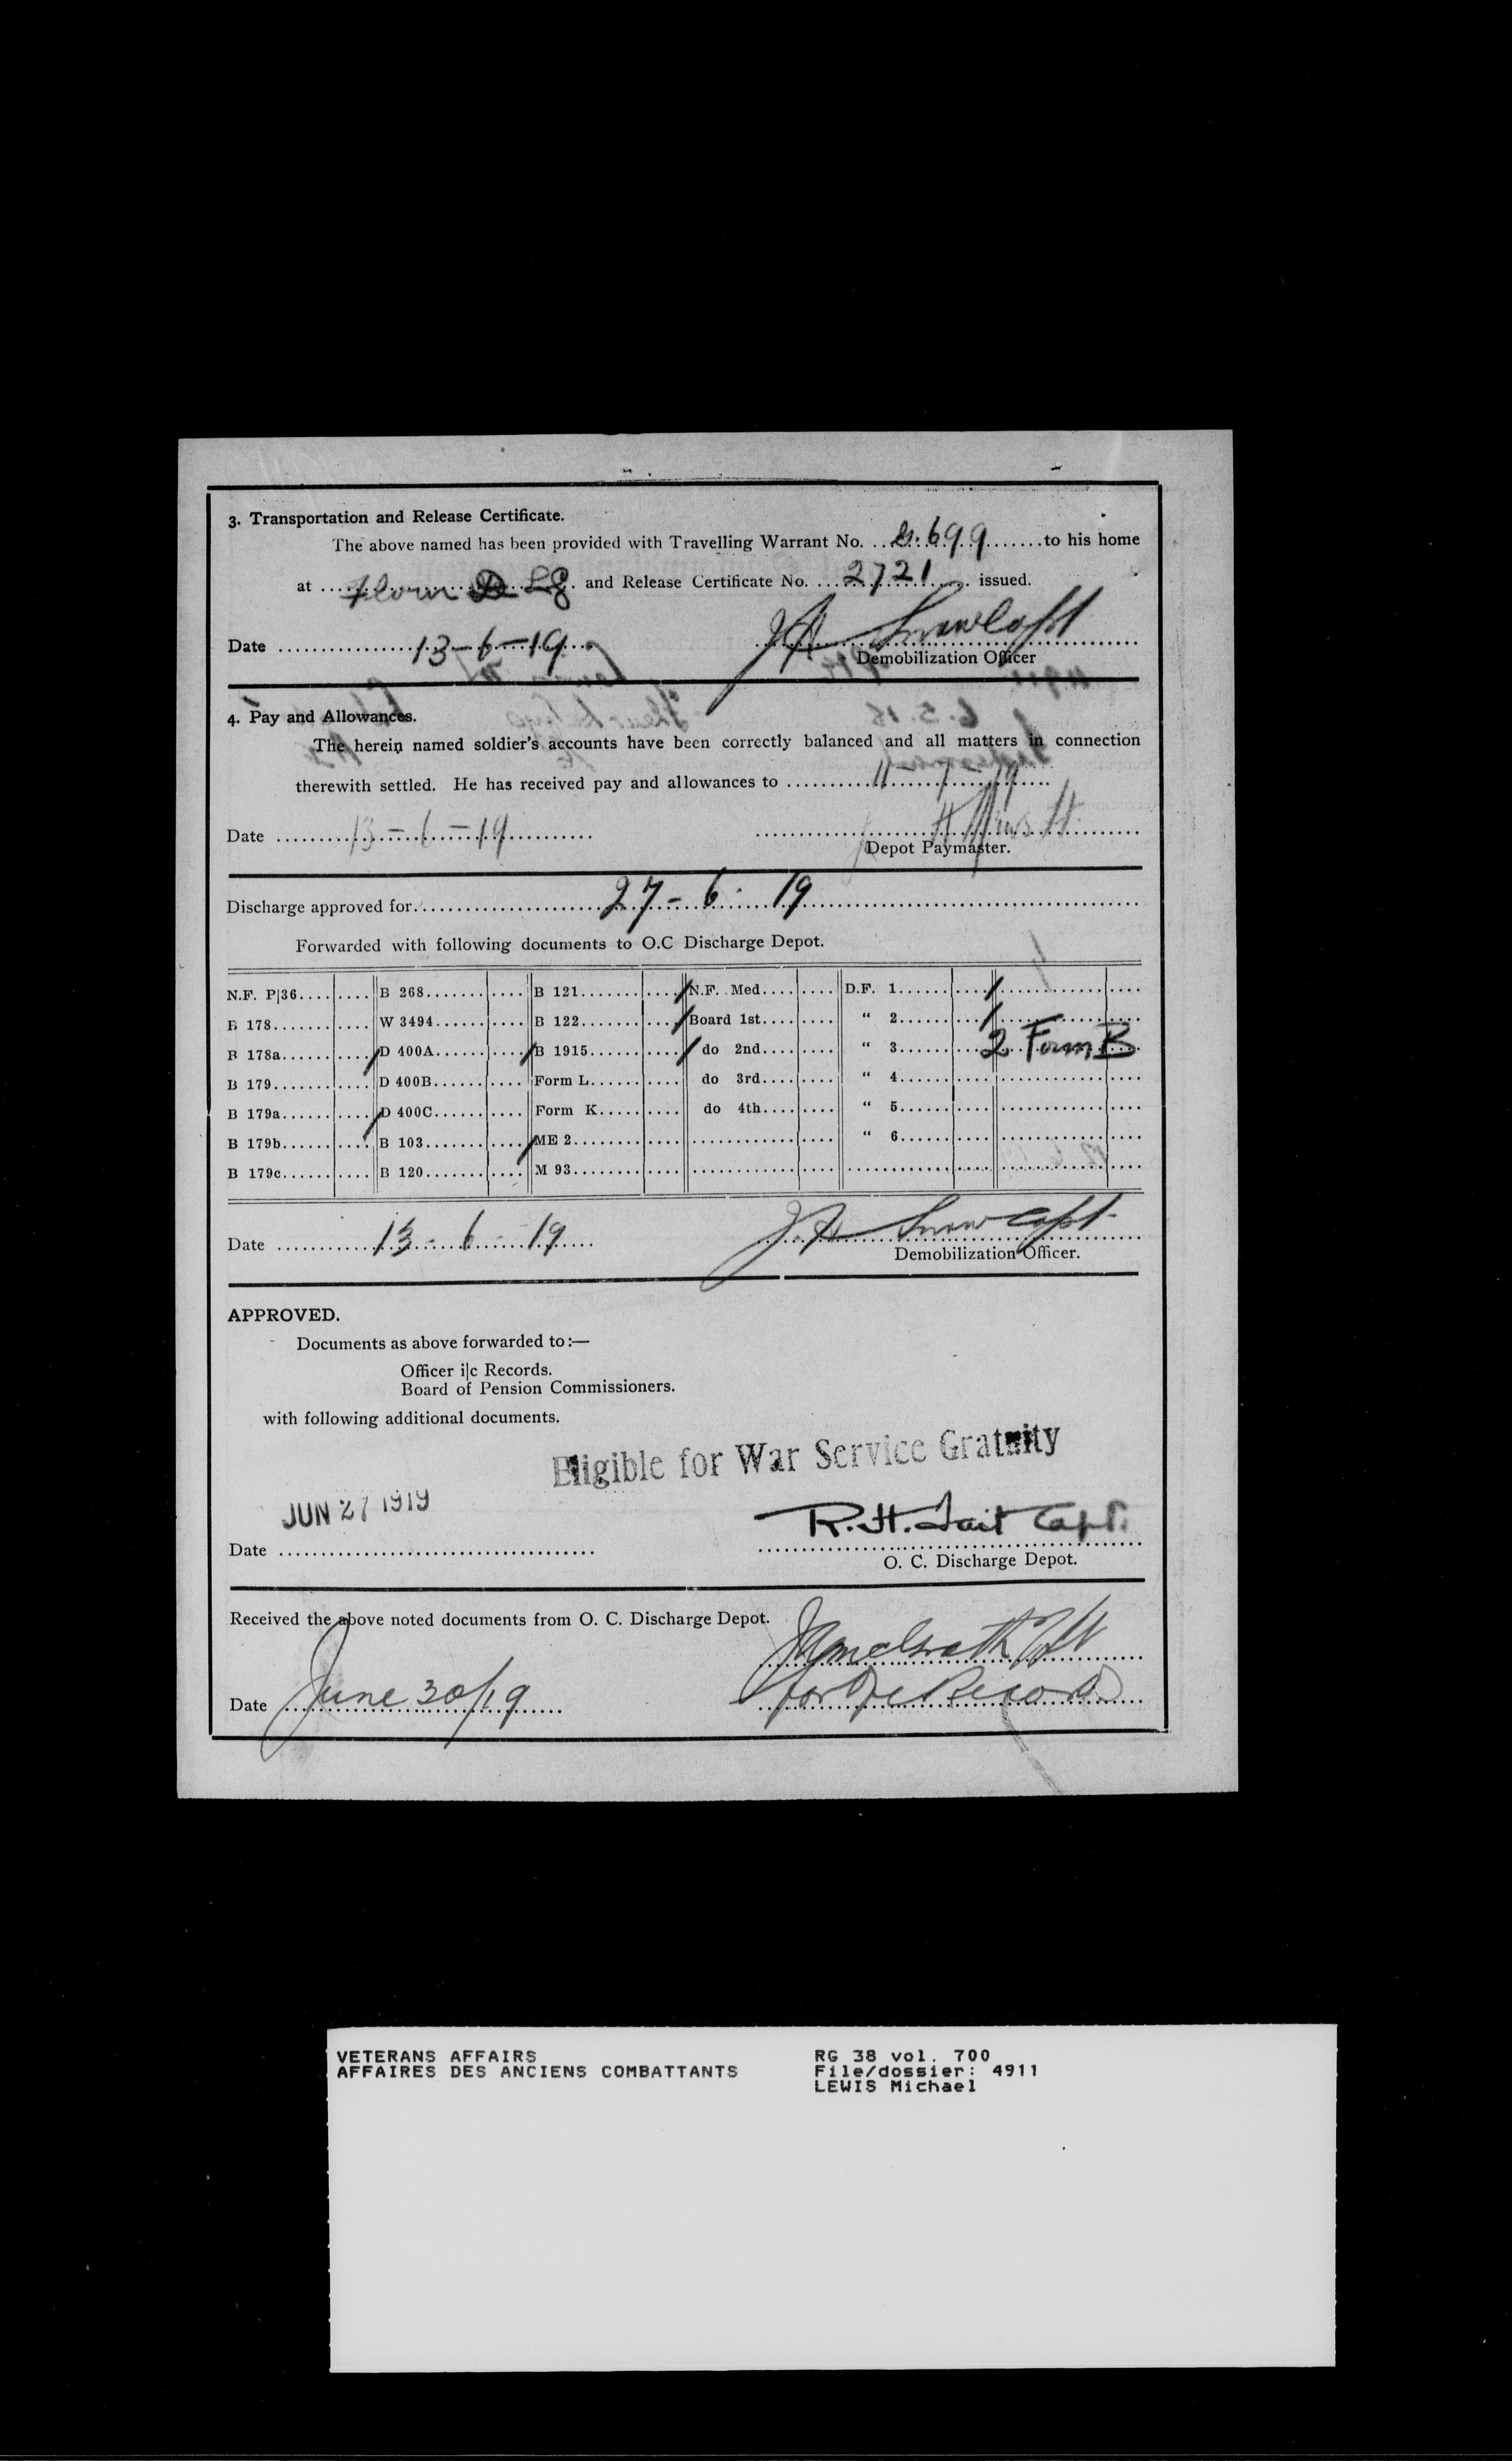 3. Transportation and Release Certificate.
The above named has been provided with Travelling Warrant No. ... 699 ... to his home
at ... and Release Certificate No. 2721 issued.
Date 13-6-19 J A Snow Capt
Demobilization Officer
4. Pay and Allowances.
The herein named soldier's accounts have been correctly balanced and all matters in connection
therewith settled. He has received pay and allowances to 11-7-19
Date 13-6-19
Depot Paymaster.
Discharge approved for 27-6-19
Forwarded with following documents to O.C Discharge Depot.
N.F. P|36 B 268 B 121 / N.F. Med. D.F. 1 /
B 178 W 3494 B 122 / Board 1st " 2 /
B 178a / D 400A / B 1915 / do 2nd " 3 2 Form B
B 179 D 400B Form L do 3rd " 4
B 179a / D 400C Form K do 4th " 5
B 179b / B 103 / ME 2 " 6
B 179c B 120 M 93
Date 13-6-19 J.A Snow Capt.
Demobilization Officer.
APPROVED.
Documents as above forwarded to:—
Officer i|c Records.
Board of Pension Commissioners.
with following additional documents.
Eligible for War Service Gratuity
JUN 27 1919
R.H. Tait Capt.
Date
O. C. Discharge Depot.
Received the above noted documents from O. C. Discharge Depot.
Date June 30/19 for Records
VETERANS AFFAIRS RG 38 vol. 700
AFFAIRES DES ANCIENS COMBATTANTS File/dossier: 4911
LEWIS Michael